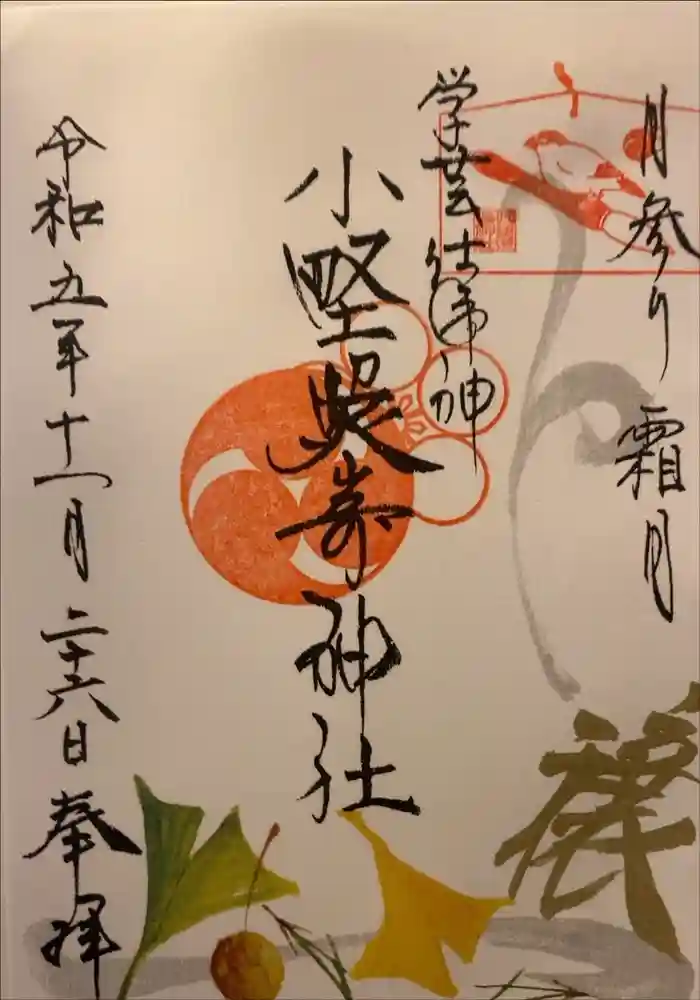 月参り 霜月
学芸仕事神
小墅照嵜神社
令和五年十一月二十六日 奉拝